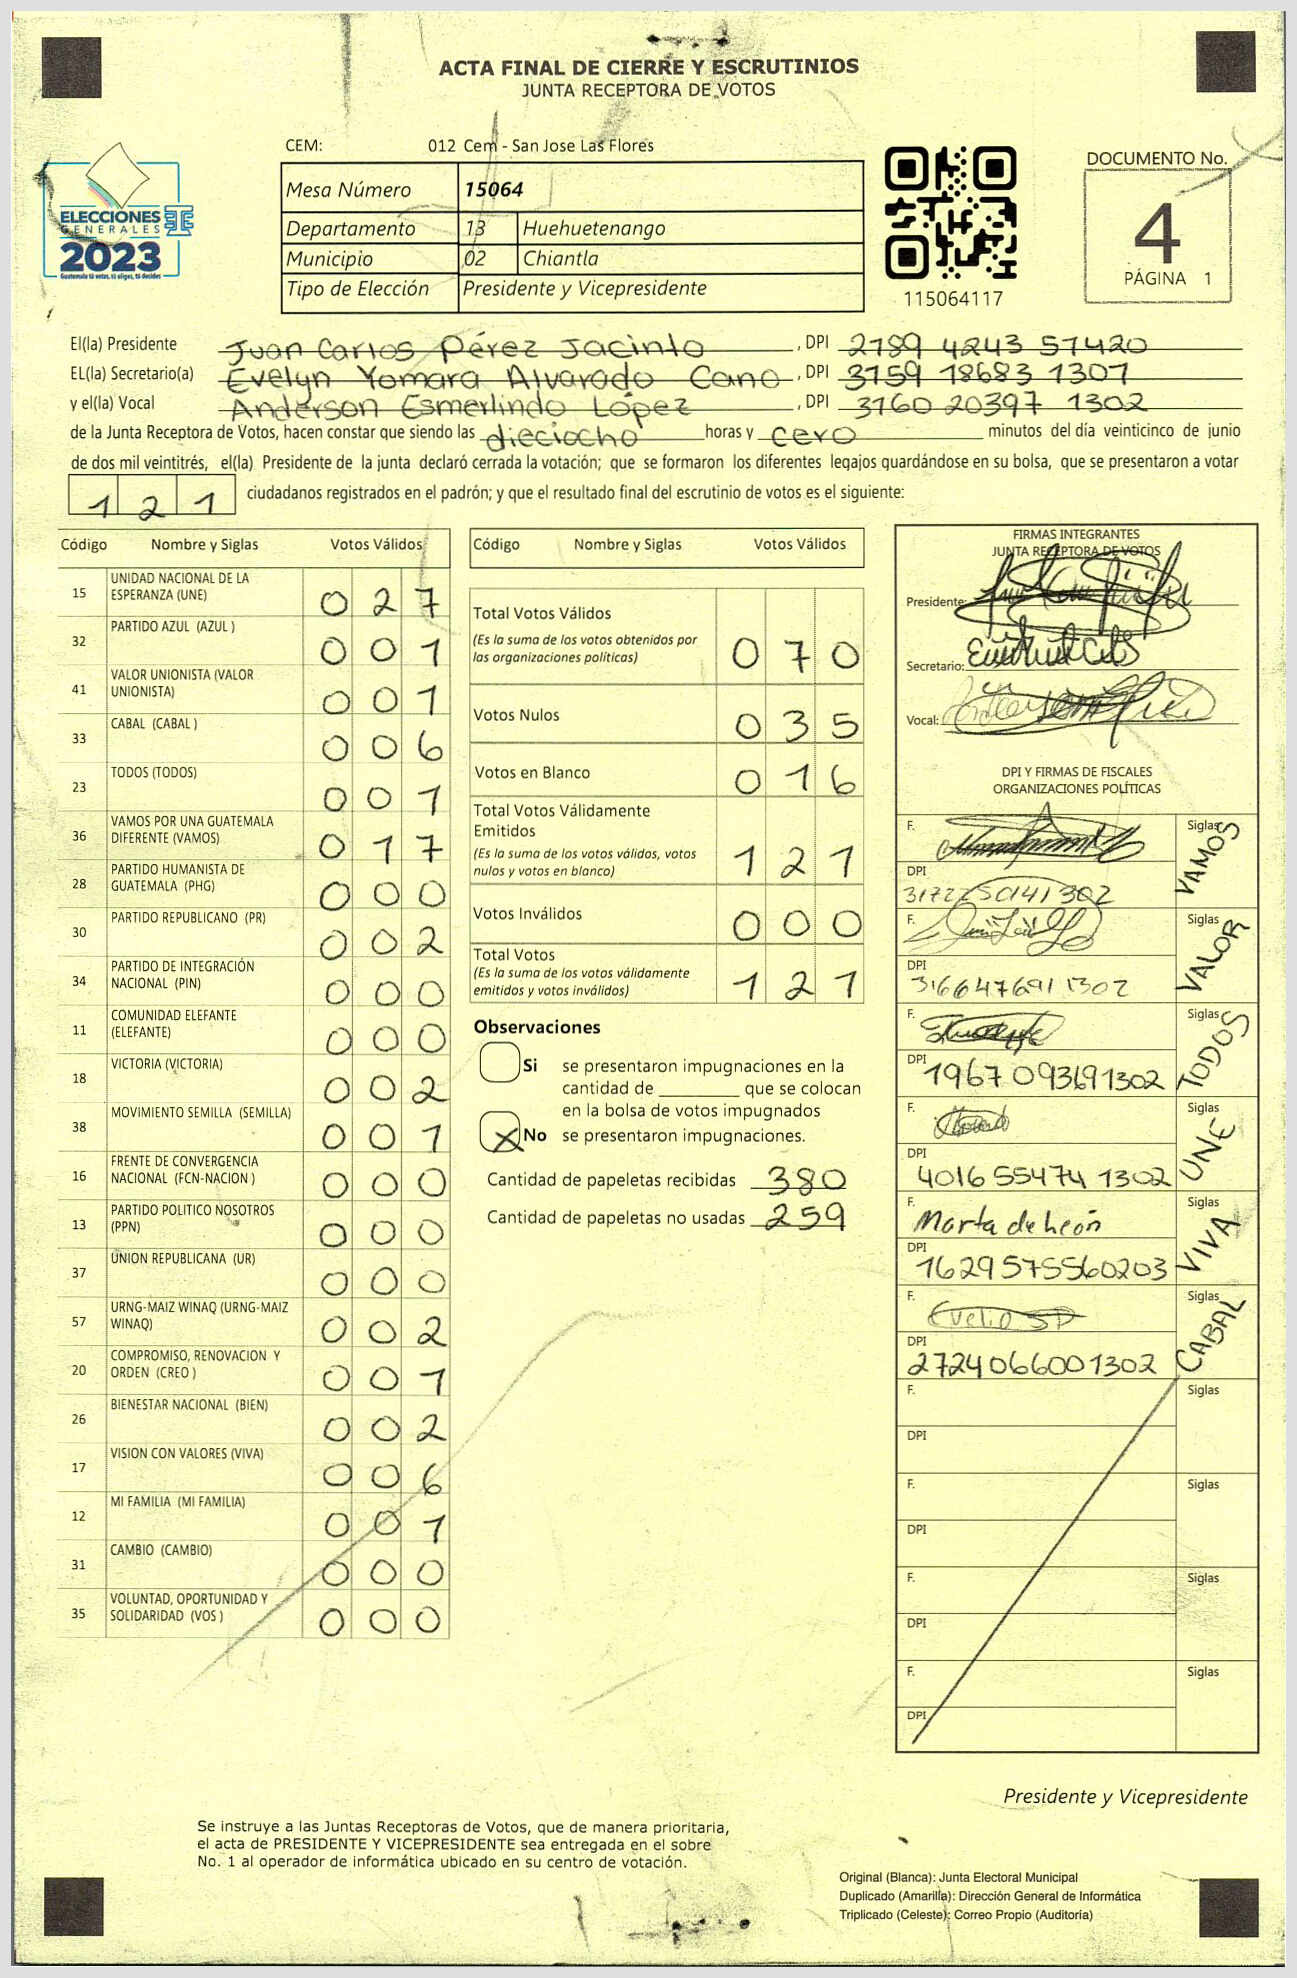 ACTA FINAL DE CIERRE Y ESCRUTINIOS
JUNTA RECEPTORA DE VOTOS
CEM: 012 Cem - San Jose Las Flores
Mesa Número 15064
Departamento 13 Huehuetenango
Municipio 02 Chiantla
Tipo de Elección Presidente y Vicepresidente
ELECCIONES
GENERALES
2023
Guatemala tú votas, tú eliges, tú decides
115064117
DOCUMENTO No.
4
PÁGINA 1
El(la) Presidente Juan Carlos Pérez Jacinto , DPI 2789 4243 57420
EL(la) Secretario(a) Evelyn Yomara Alvarado Cano , DPI 3159 18683 1307
y el(la) Vocal Anderson Esmerlindo López , DPI 3160 20397 1302
de la Junta Receptora de Votos, hacen constar que siendo las dieciocho horas y cero minutos del día veinticinco de junio
de dos mil veintitrés, el(la) Presidente de la junta declaró cerrada la votación; que se formaron los diferentes legajos guardándose en su bolsa, que se presentaron a votar
121 ciudadanos registrados en el padrón; y que el resultado final del escrutinio de votos es el siguiente:
Código Nombre y Siglas Votos Válidos
15 UNIDAD NACIONAL DE LA
ESPERANZA (UNE) 027
32 PARTIDO AZUL (AZUL ) 001
41 VALOR UNIONISTA (VALOR
UNIONISTA) 001
33 CABAL (CABAL ) 006
23 TODOS (TODOS) 001
36 VAMOS POR UNA GUATEMALA
DIFERENTE (VAMOS) 017
28 PARTIDO HUMANISTA DE
GUATEMALA (PHG) 000
30 PARTIDO REPUBLICANO (PR) 002
34 PARTIDO DE INTEGRACIÓN
NACIONAL (PIN) 000
11 COMUNIDAD ELEFANTE
(ELEFANTE) 000
18 VICTORIA (VICTORIA) 002
38 MOVIMIENTO SEMILLA (SEMILLA) 001
16 FRENTE DE CONVERGENCIA
NACIONAL (FCN-NACION ) 000
13 PARTIDO POLITICO NOSOTROS
(PPN) 000
37 UNION REPUBLICANA (UR) 000
57 URNG-MAIZ WINAQ (URNG-MAIZ
WINAQ) 002
20 COMPROMISO, RENOVACION Y
ORDEN (CREO ) 001
26 BIENESTAR NACIONAL (BIEN) 002
17 VISION CON VALORES (VIVA) 006
12 MI FAMILIA (MI FAMILIA) 001
31 CAMBIO (CAMBIO) 000
35 VOLUNTAD, OPORTUNIDAD Y
SOLIDARIDAD (VOS ) 000
Código Nombre y Siglas Votos Válidos
Total Votos Válidos
(Es la suma de los votos obtenidos por
las organizaciones políticas) 070
Votos Nulos 035
Votos en Blanco 016
Total Votos Válidamente
Emitidos
(Es la suma de los votos válidos, votos
nulos y votos en blanco) 121
Votos Inválidos 000
Total Votos
(Es la suma de los votos válidamente
emitidos y votos inválidos) 121
Observaciones
Si se presentaron impugnaciones en la
cantidad de ________ que se colocan
en la bolsa de votos impugnados
X No se presentaron impugnaciones.
Cantidad de papeletas recibidas 380
Cantidad de papeletas no usadas 259
FIRMAS INTEGRANTES
JUNTA RECEPTORA DE VOTOS
Presidente:
Secretario:
Vocal:
DPI Y FIRMAS DE FISCALES
ORGANIZACIONES POLÍTICAS
F. Siglas VAMOS
DPI 3172250141302
F. Siglas VALOR
DPI 3166476911302
F. Siglas TODOS
DPI 1967 093691302
F. Siglas UNE
DPI 4016 55474 1302
F. Marta de León Siglas VIVA
DPI 1629575560203
F. Siglas CABAL
DPI 2724066001302
F. Siglas
DPI
F. Siglas
DPI
F. Siglas
DPI
F. Siglas
DPI
Presidente y Vicepresidente
Se instruye a las Juntas Receptoras de Votos, que de manera prioritaria,
el acta de PRESIDENTE Y VICEPRESIDENTE sea entregada en el sobre
No. 1 al operador de informática ubicado en su centro de votación.
Original (Blanca): Junta Electoral Municipal
Duplicado (Amarilla): Dirección General de Informática
Triplicado (Celeste): Correo Propio (Auditoría)